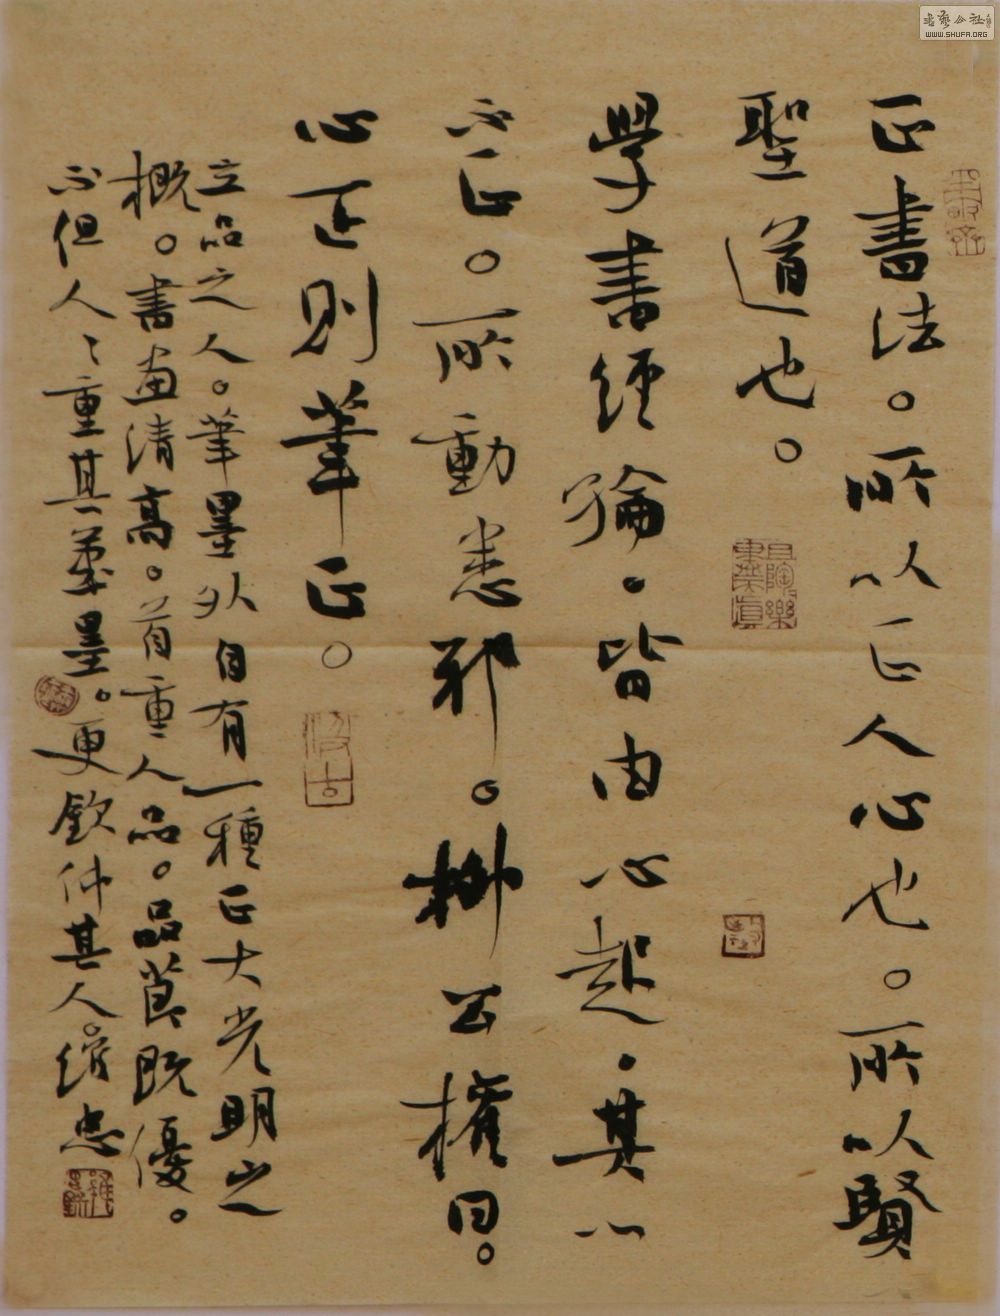 正書法。所以正人心也。所以賢
聖道也。
學書經綸。皆由心起。其心
不正。所動悉邪。柳公權曰。
心正則筆正。
立品之人。筆墨外自有一種正大光明之
概。書畫清高。首重人品。品節既優。
不但人人重其筆墨。更欽仰其人。
书艺公社
WWW.SHUFA.ORG